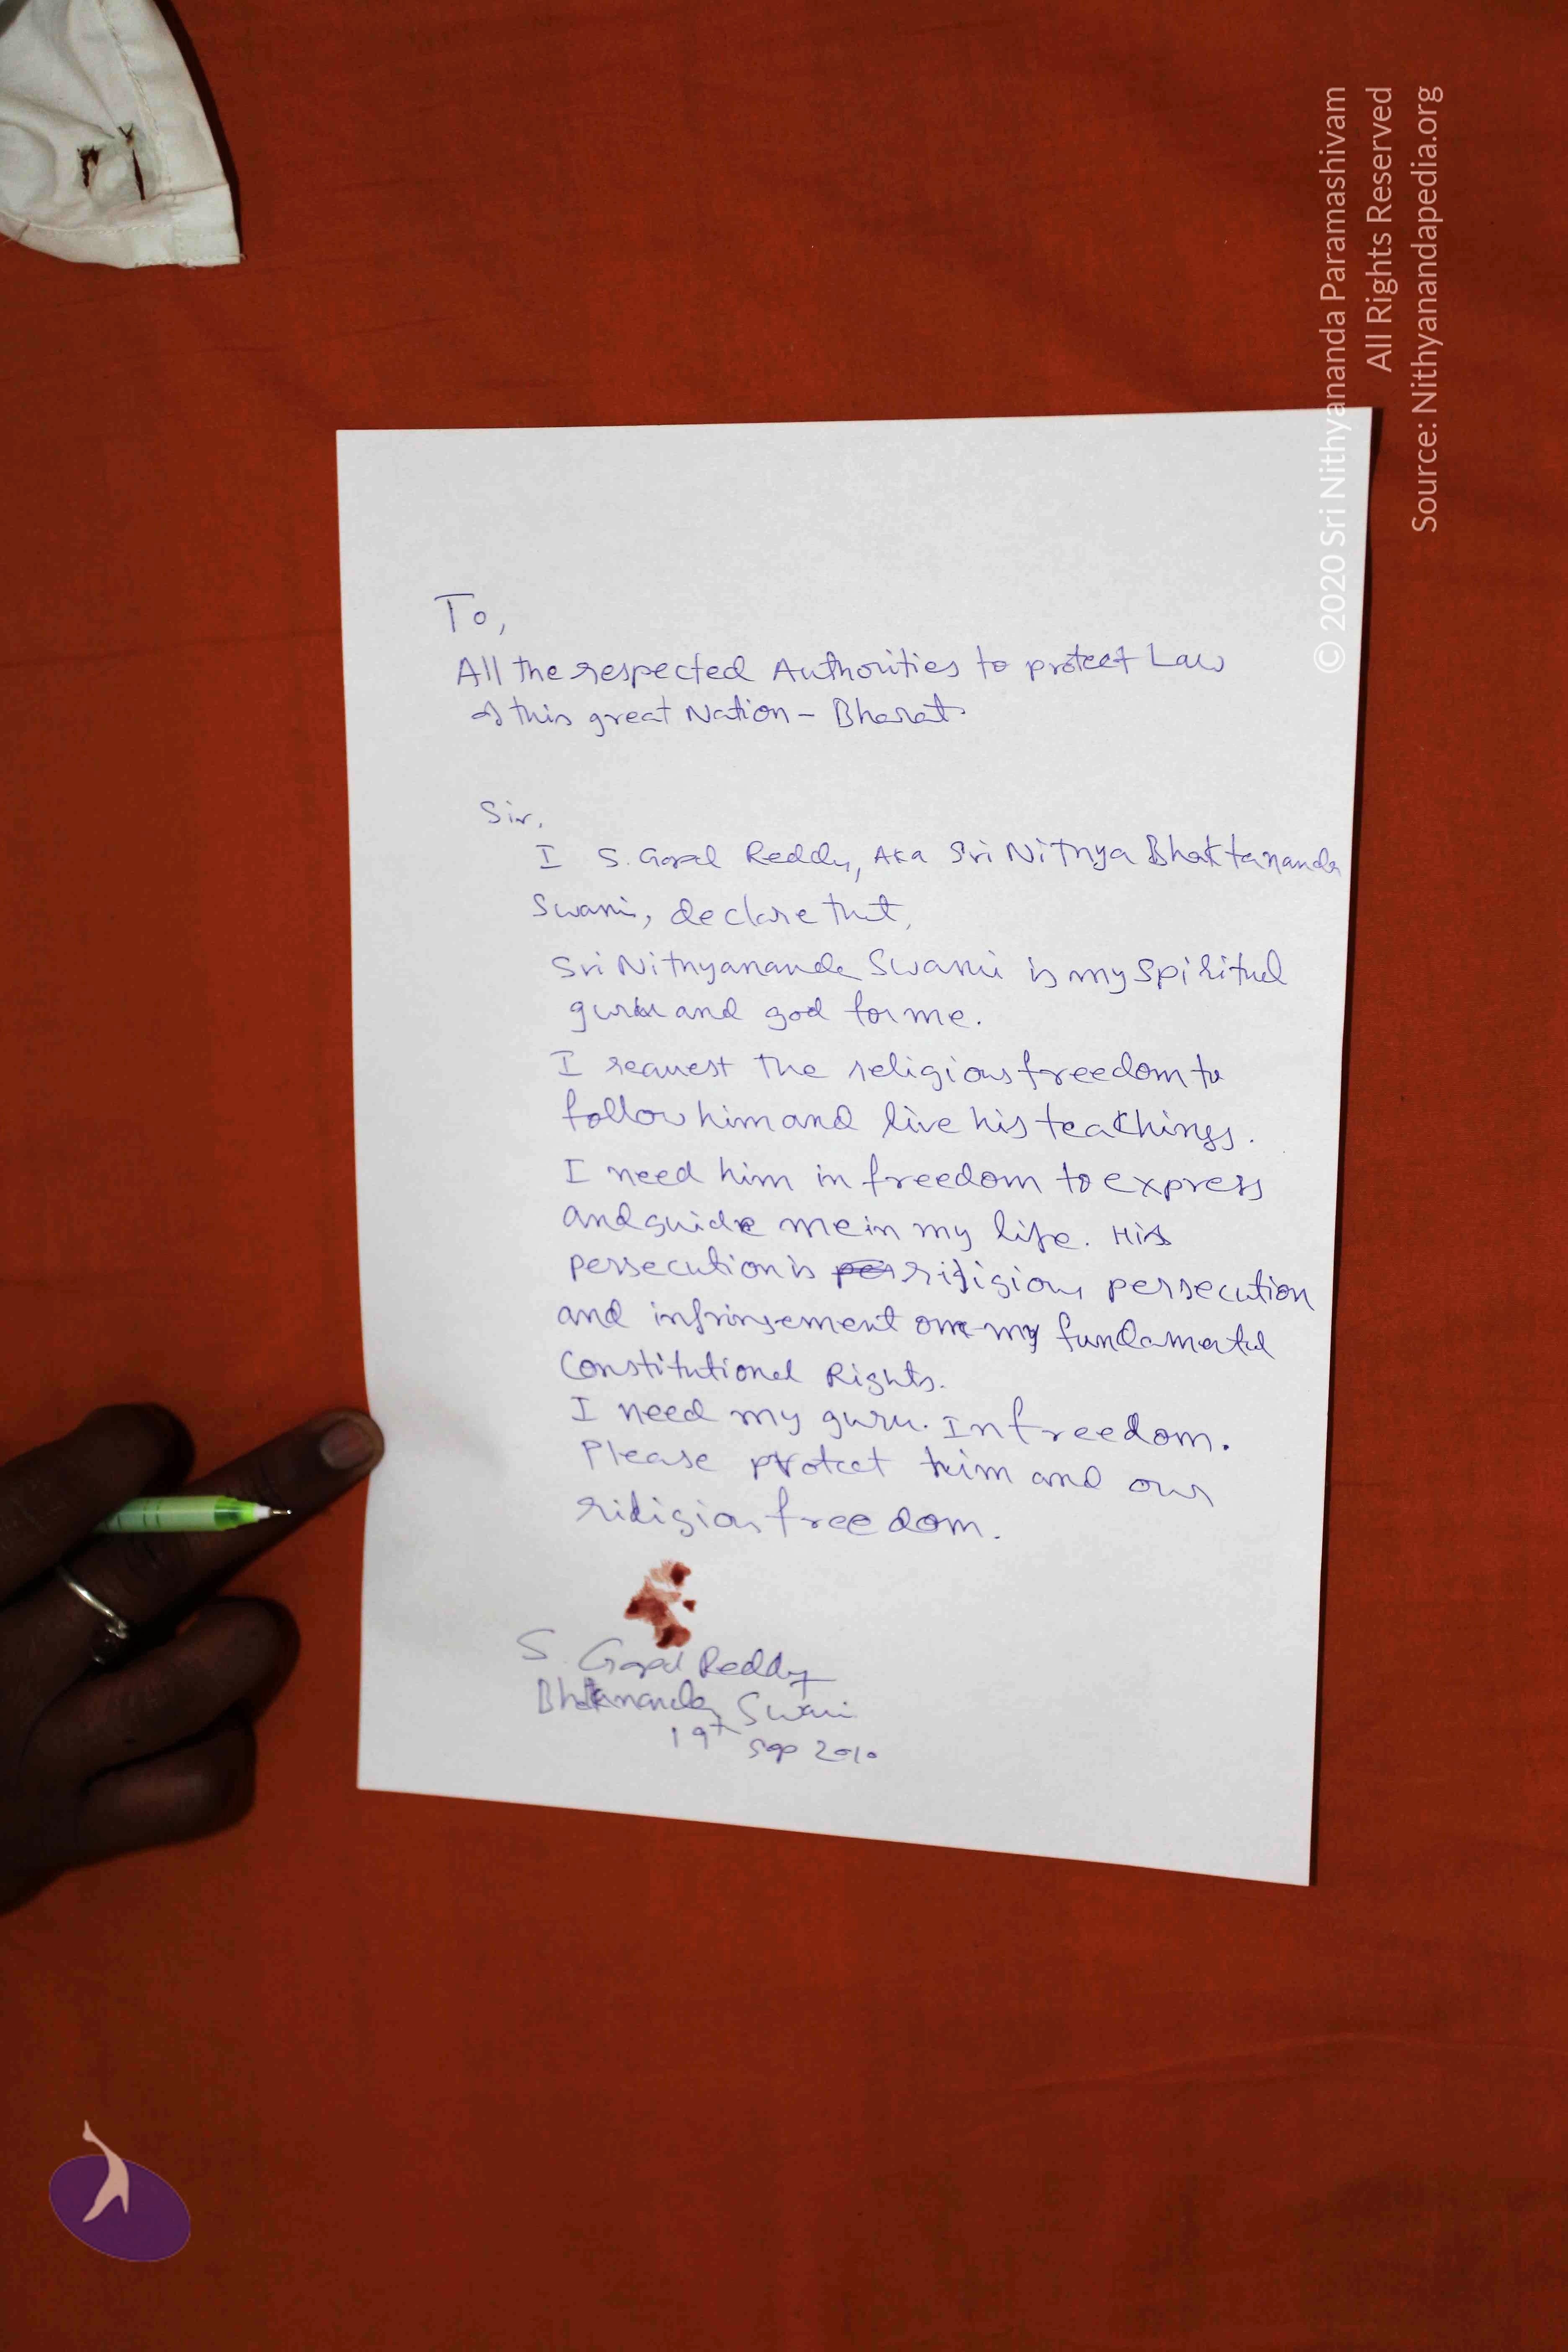 To,
All the respected Authorities to protect Law
of this great Nation - Bharat.
Sir,
I S. Gopal Reddy, AKA Sri Nithya Bhaktananda
Swami, declare that,
Sri Nithyananda Swami is my spiritual
guru and god for me.
I request the religious freedom to
follow him and live his teachings.
I need him in freedom to express
and guide me in my life. His
persecution is riligious persecution
and infringement on my fundamental
Constitutional Rights.
I need my guru. In freedom.
Please protect him and our
riligious freedom.
S. Gopal Reddy
Bhaktananda Swami
19th Sep 2010
© 2020 Sri Nithyananda Paramashivam
All Rights Reserved
Source: Nithyanandapedia.org